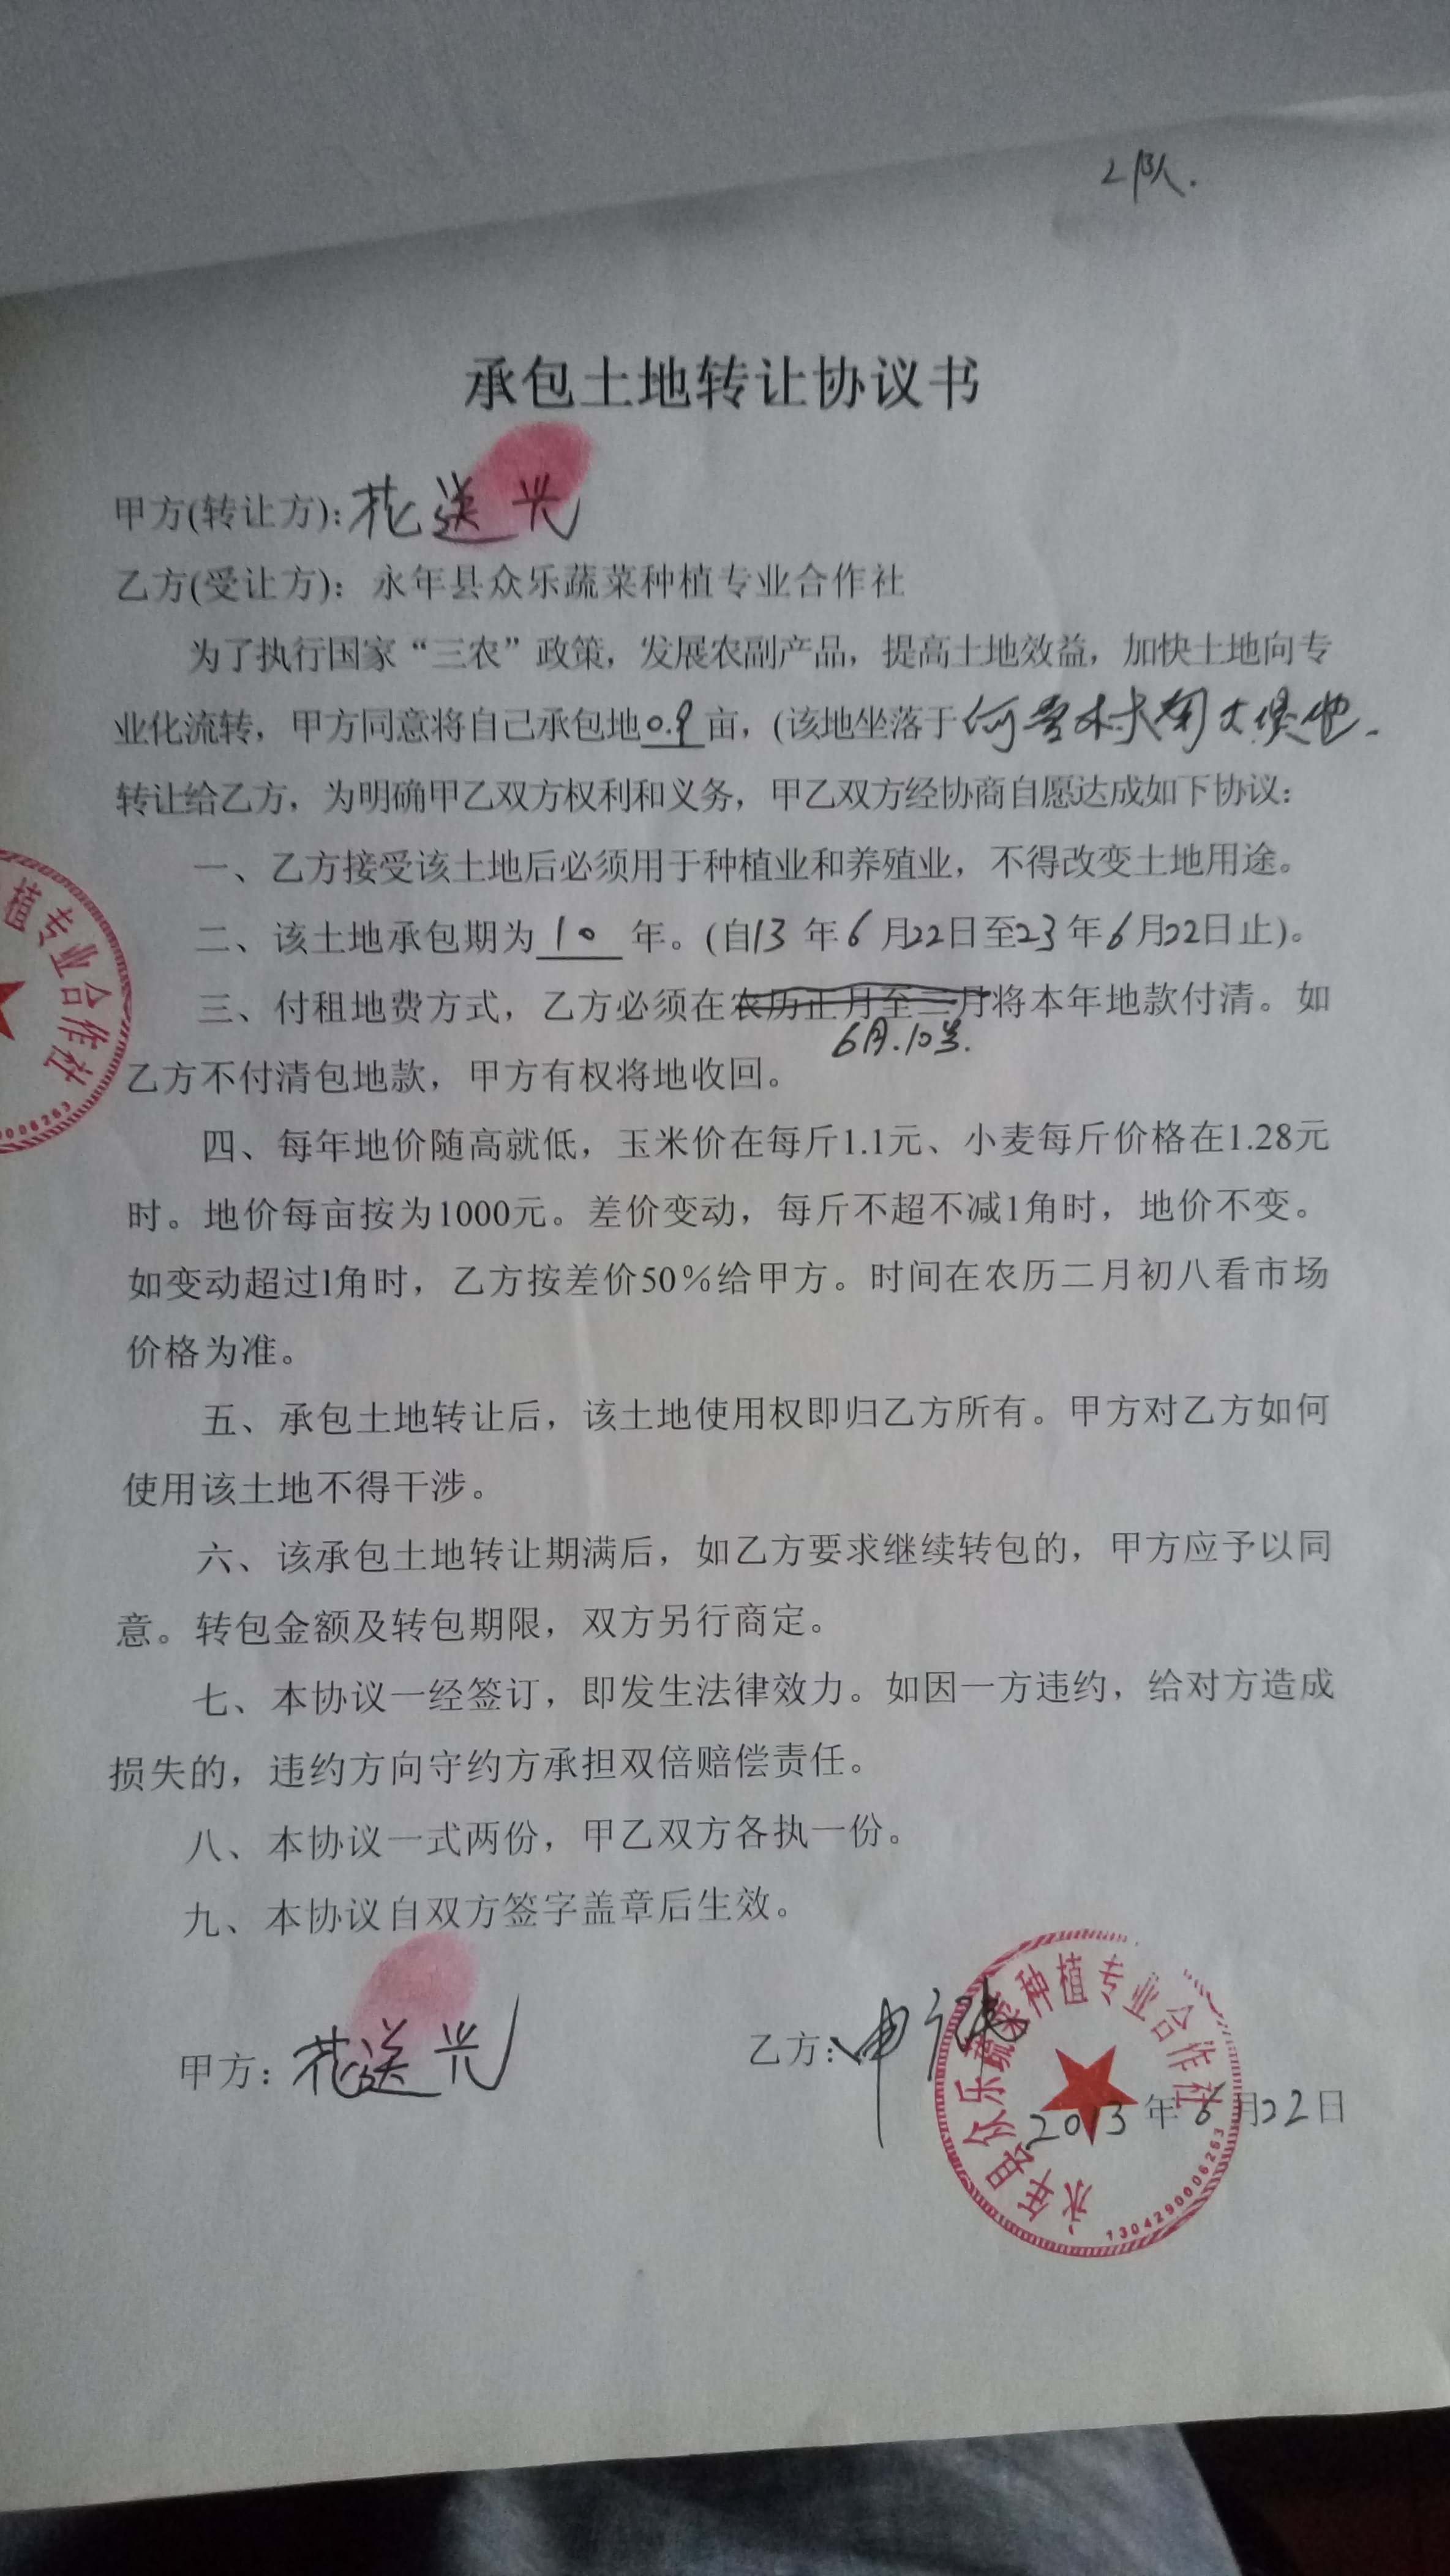 2队.
承包土地转让协议书
甲方(转让方):花送兴
乙方(受让方):永年县众乐蔬菜种植专业合作社
为了执行国家“三农”政策，发展农副产品，提高土地效益，加快土地向专
业化流转，甲方同意将自己承包地0.9亩，(该地坐落于何 村南大 地.
转让给乙方，为明确甲乙双方权利和义务，甲乙双方经协商自愿达成如下协议:
一、乙方接受该土地后必须用于种植业和养殖业，不得改变土地用途。
二、该土地承包期为 10 年。(自13年6月22日至23年6月22日止)。
三、付租地费方式，乙方必须在农历正月至三月将本年地款付清。如
6月.10号.
乙方不付清包地款，甲方有权将地收回。
四、每年地价随高就低，玉米价在每斤1.1元、小麦每斤价格在1.28元
时。地价每亩按为1000元。差价变动，每斤不超不减1角时，地价不变。
如变动超过1角时，乙方按差价50%给甲方。时间在农历二月初八看市场
价格为准。
五、承包土地转让后，该土地使用权即归乙方所有。甲方对乙方如何
使用该土地不得干涉。
六、该承包土地转让期满后，如乙方要求继续转包的，甲方应予以同
意。转包金额及转包期限，双方另行商定。
七、本协议一经签订，即发生法律效力。如因一方违约，给对方造成
损失的，违约方向守约方承担双倍赔偿责任。
八、本协议一式两份，甲乙双方各执一份。
九、本协议自双方签字盖章后生效。
甲方:花送兴
乙方:申
2013年6月22日
永年县众乐蔬菜种植专业合作社
1304290006263
植专业合作社
0006263